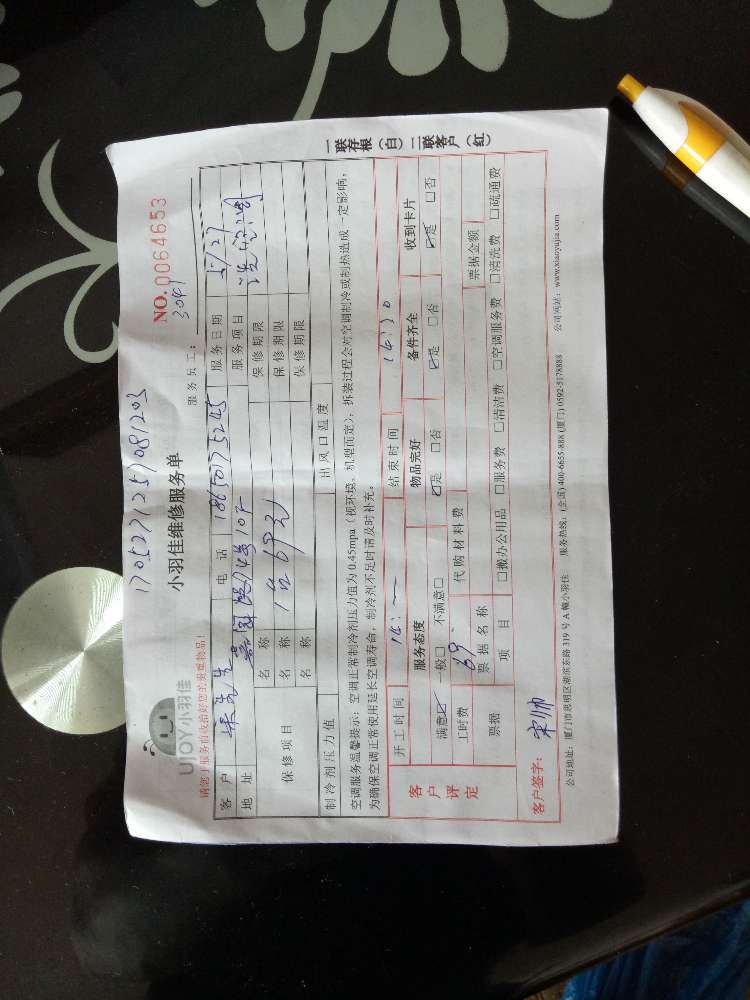 1705271257081203
小羽佳维修服务单
NO. 0064653
UJOY小羽佳
请您于服务前收拾好您的贵重物品!
服务员工: 3041
客户 先生 电话 18650175245 服务日期 5/27
地址 服务项目
保修项目 名称 1台69元 保修期限
名称 保修期限
名称 保修期限
制冷剂压力值 出风口温度
空调服务温馨提示:空调正常制冷剂压力值为 0.45mpa(视环境、机型而定),拆装过程会对空调制冷或制热造成一定影响,
为确保空调正常使用延长空调寿命,制冷剂不足时请及时补充。
开工时间 14: 结束时间 14:30
客户评定
服务态度 物品完好 备件齐全 收到卡片
满意☑ 一般□ 不满意□ ☑是 □否 ☑是 □否 ☑是 □否
工时费 69 代购材料费 票据金额
票据 票据名称
项目 □搬办公用品 □服务费 □清洁费 □空调服务费 □清洗费 □疏通费
客户签字:
公司地址:厦门市思明区湖滨东路 319 号 A 幢小羽佳 服务热线:(全国) 400-6655-888 (厦门) 0592-5178888 公司网站:www.xiaoyujia.com
一联存根(白)二联客户(红)